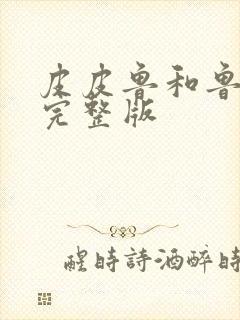 皮皮鲁和鲁
完整版
醒時詩酒醉時